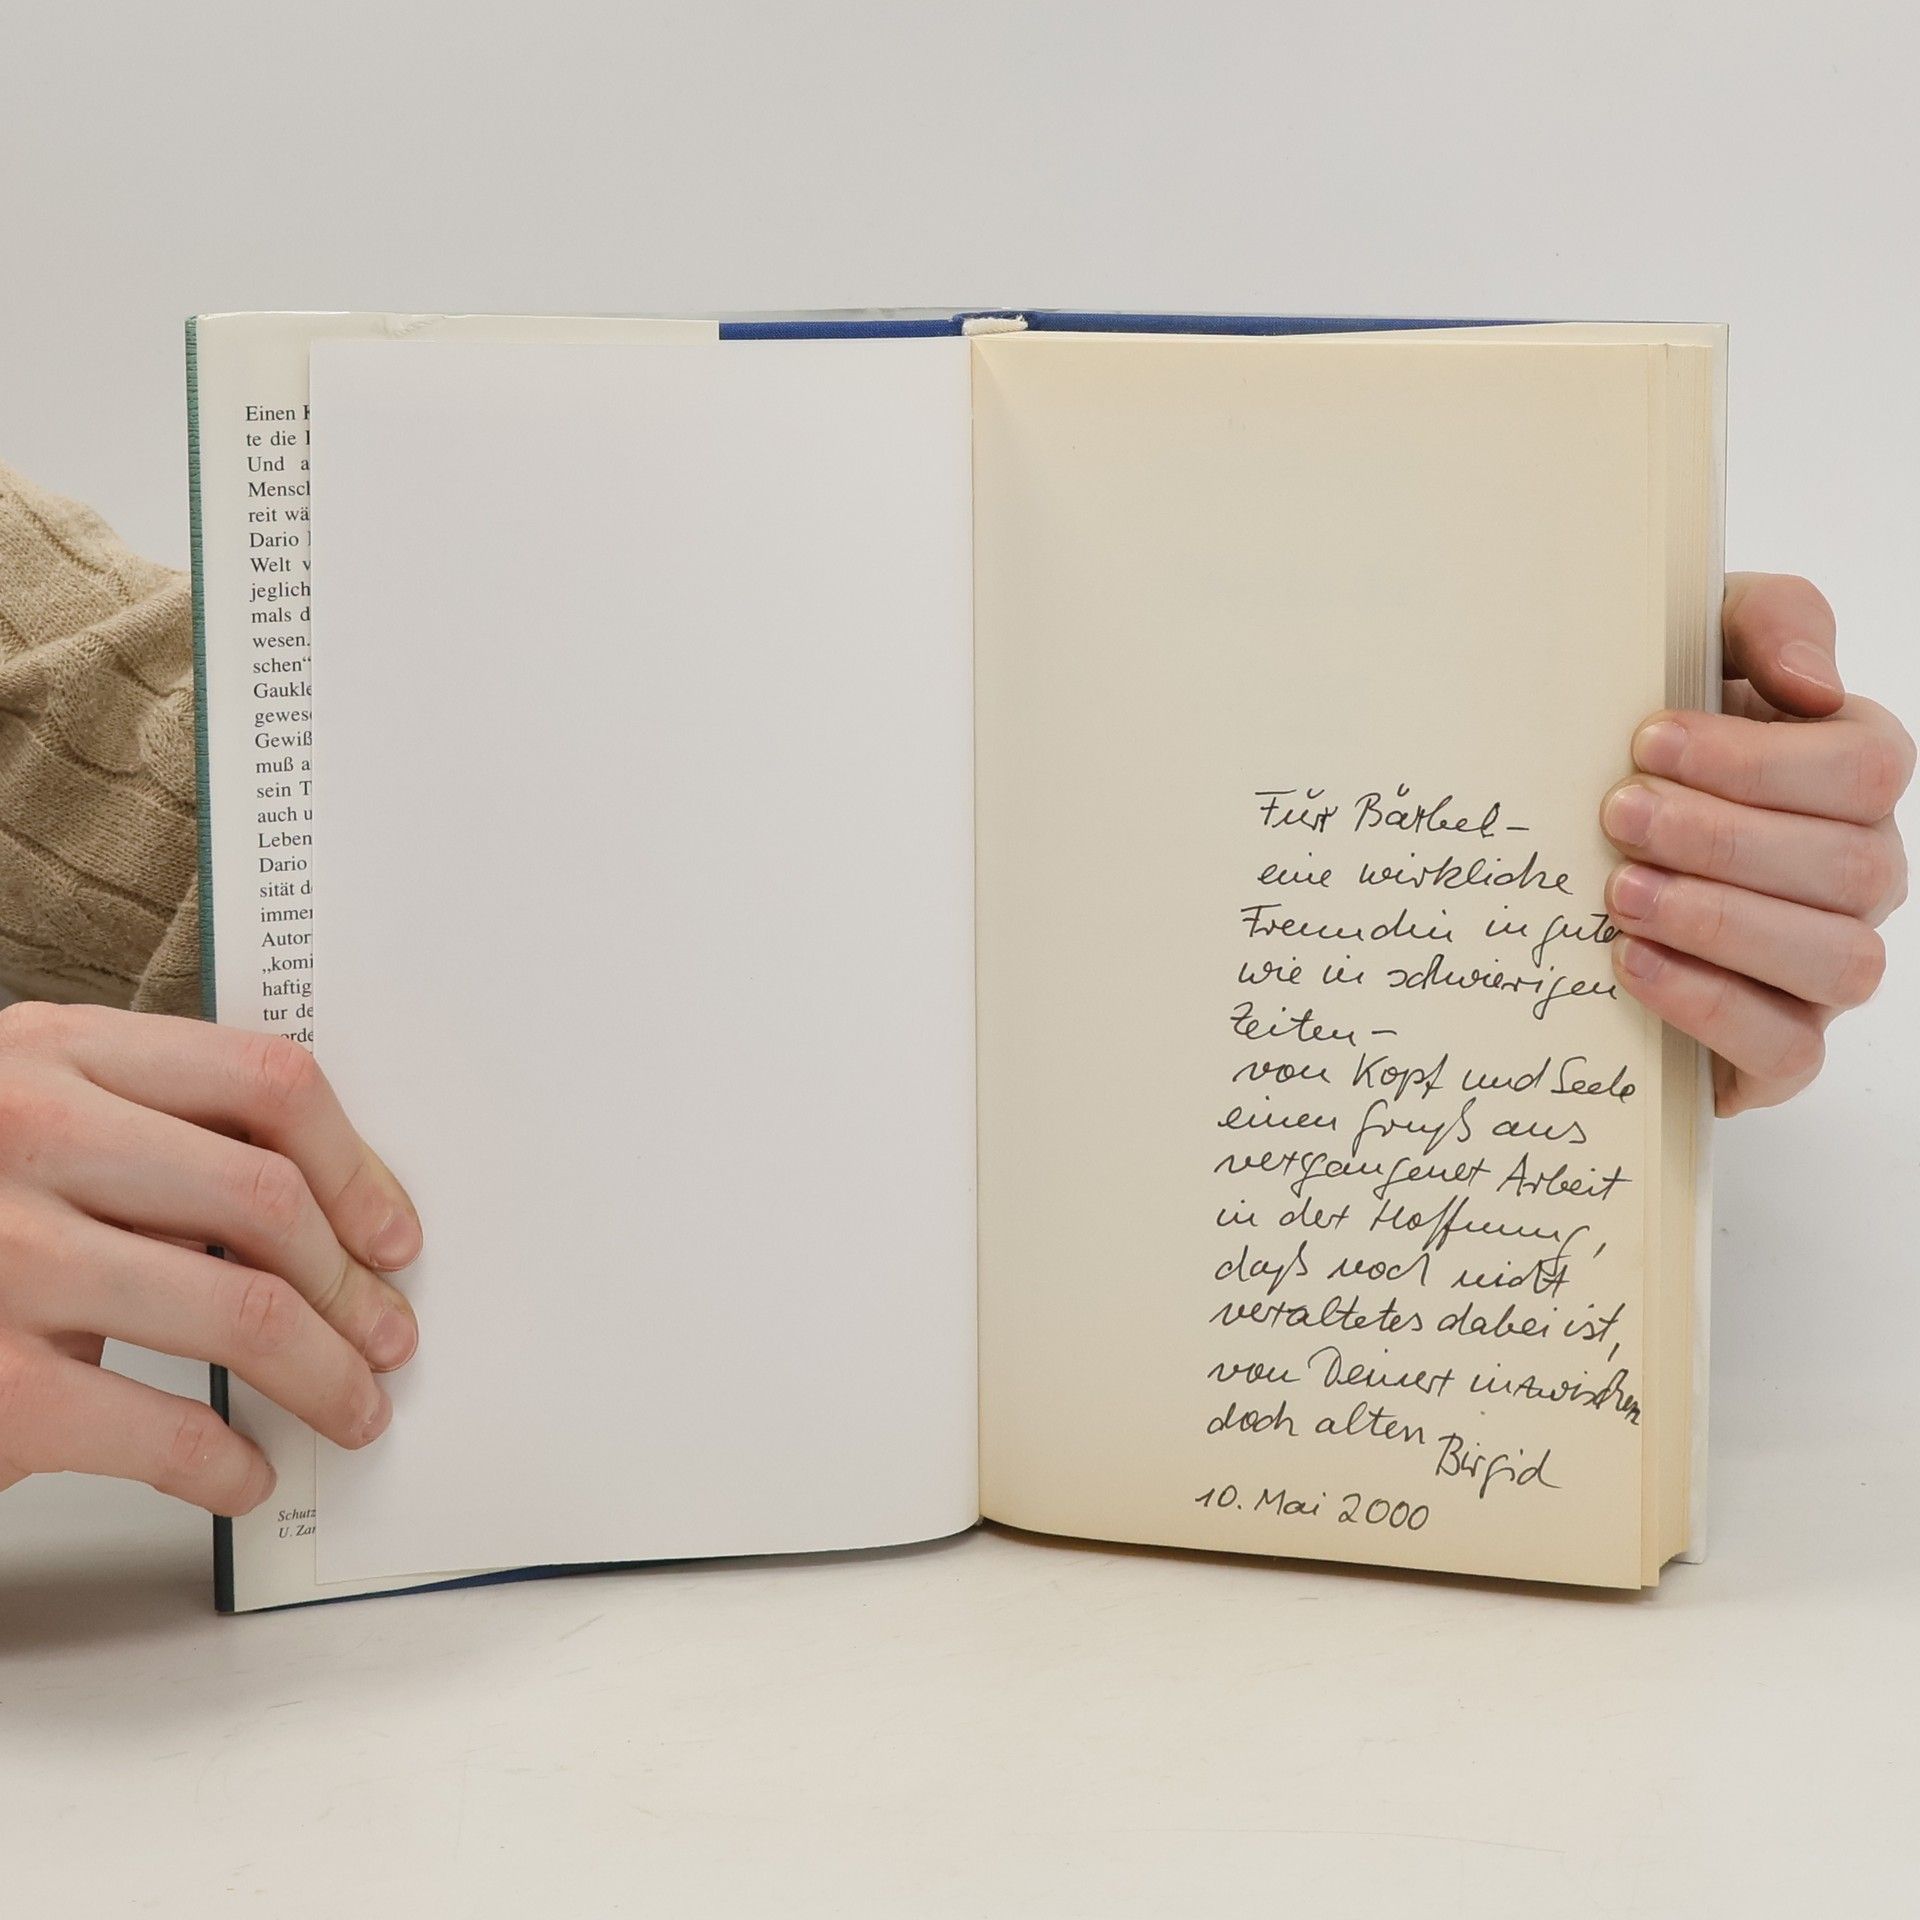 Einen
te die
Und a
Mensch
reit wä
Dario
Welt v
jeglich
mals d
wesen.
schen“
Gaukle
gewes
Gewiß
muß a
sein T
auch u
Leben
Dario
sität d
immer
Autor
„komi
haftig
tur de
orde
Schutz
U. Zar
Für Bärbel –
eine wirkliche
Freundin in guten
wie in schwierigen
Zeiten –
von Kopf und Seele
einen Gruß aus
vergangener Arbeit
in der Hoffnung,
daß noch nicht
veraltetes dabei ist,
von Deiner inzwischen
doch alten
Birgid
10. Mai 2000